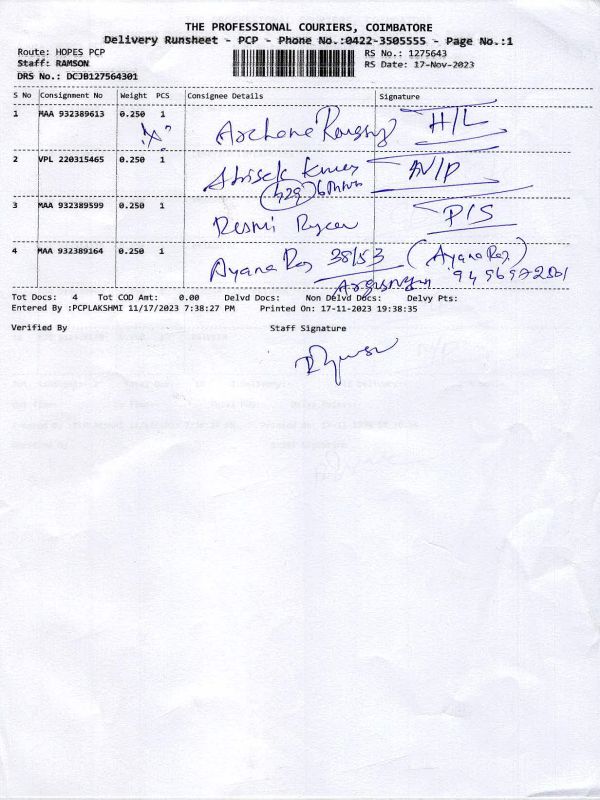 THE PROFESSIONAL COURIERS, COIMBATORE
Delivery Runsheet - PCP - Phone No.:0422-3505555 - Page No.:1
Route: HOPES PCP
Staff: RAMSON
DRS No.: DCJB127564301
RS No.: 1275643
RS Date: 17-Nov-2023
S No Consignment No Weight PCS Consignee Details Signature
1 MAA 932389613 0.250 1 H/L
2 VPL 220315465 0.250 1
3 MAA 932389599 0.250 1 Resmi P/S
4 MAA 932389164 0.250 1 Ayana Raj 38/53 (Ayana Raj)
Tot Docs: 4 Tot COD Amt: 0.00 Delvd Docs: Non Delvd Docs: Delvy Pts:
Entered By :PCPLAKSHMI 11/17/2023 7:38:27 PM Printed On: 17-11-2023 19:38:35
Verified By Staff Signature